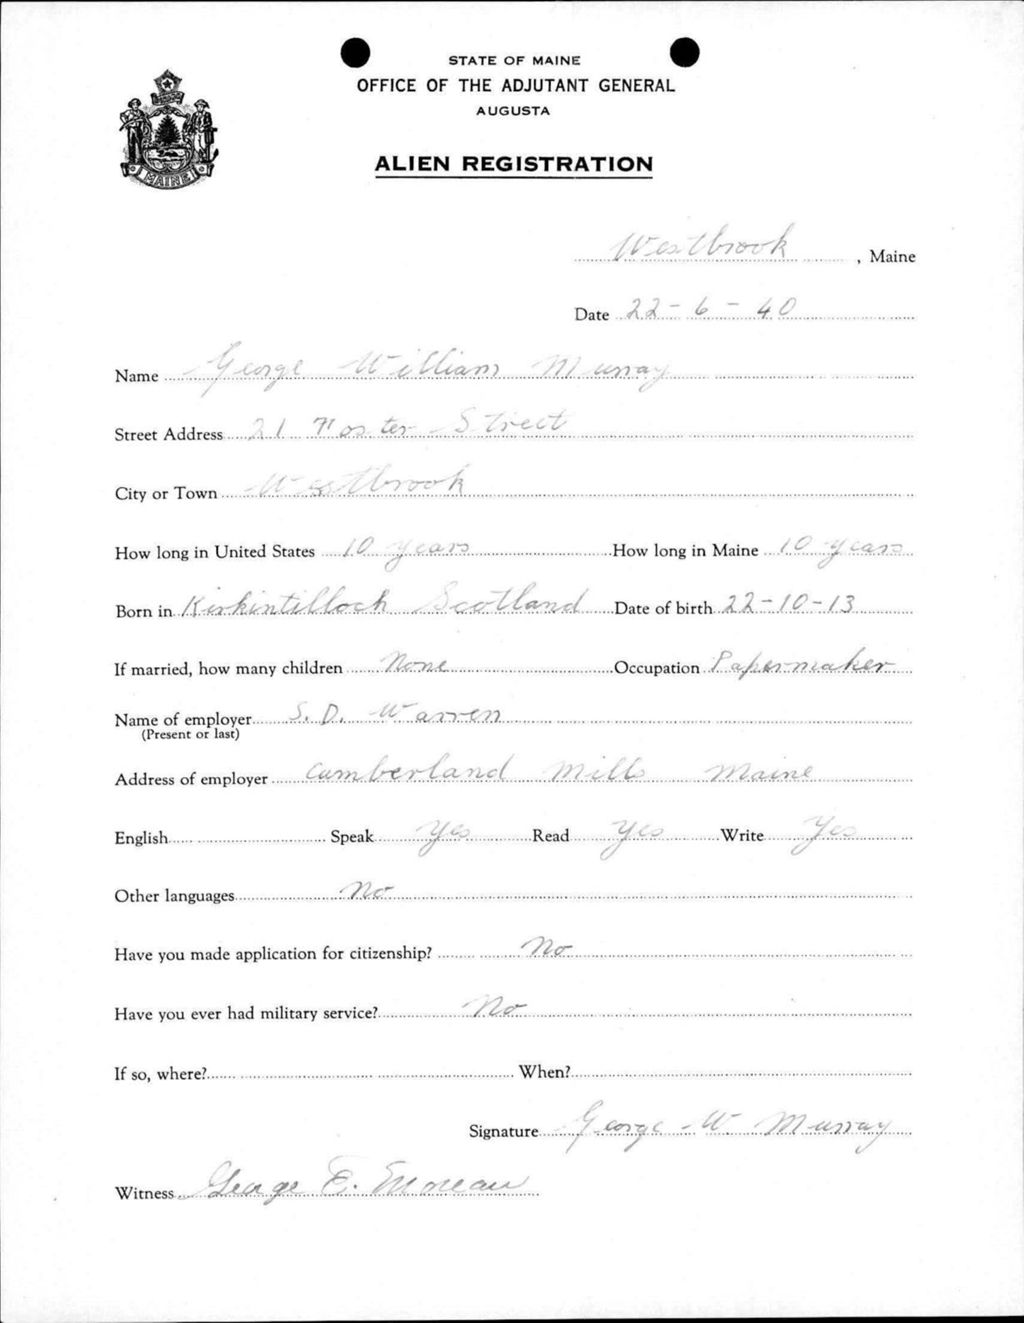 STATE OF MAINE
OFFICE OF THE ADJUTANT GENERAL
AUGUSTA
ALIEN REGISTRATION
MAINE
Westbrook, Maine
Date 22-6-40
Name George William Murray
Street Address 21 Foster Street
City or Town Westbrook
How long in United States 10 years How long in Maine 10 years
Born in Kirkintilloch Scotland Date of birth 22-10-13
If married, how many children None Occupation Papermaker
Name of employer S. D. Warren
(Present or last)
Address of employer Cumberland Mills Maine
English Speak Yes Read Yes Write Yes
Other languages No
Have you made application for citizenship? No
Have you ever had military service? No
If so, where? When?
Signature George W Murray
Witness George E. Moreau